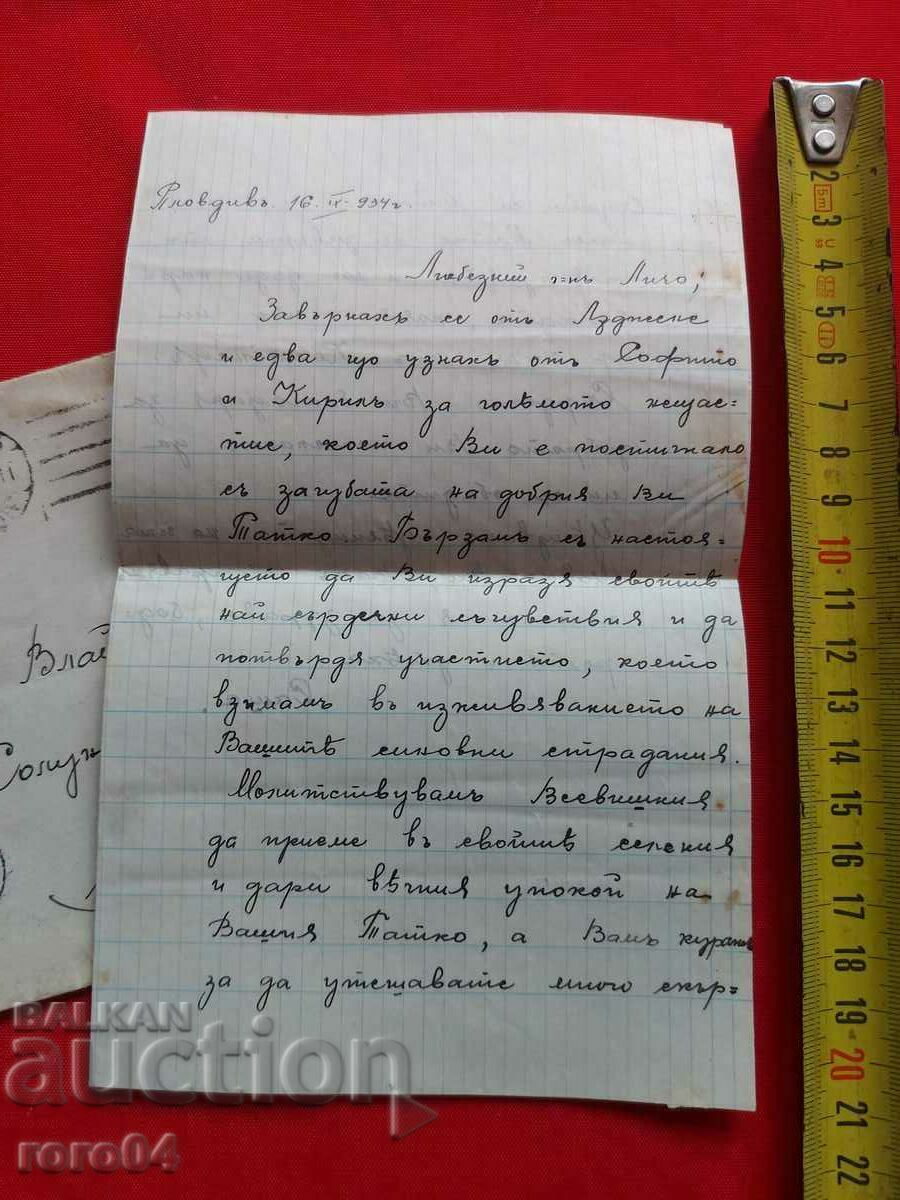 Пловдивъ. 16. IX. 934 г.
Любезний г=нъ Личо,
Завърнахъ се отъ Лѫджене
и едва що узнахъ отъ Софито
и Кирилъ за голѣмото нещас=
тие, което Ви е постигнало
съ загубата на добрия Ви
Татко Бързамъ съ настоя=
щето да Ви изразя своитѣ
най сърдечни съчувствия и да
потвърдя участието, което
взимамъ въ изживяванието на
Вашитѣ синовни страдания.
Молитствувамъ Всевишния
да приеме въ своитѣ селения
и дари вѣчния упокой на
Вашия Татко, а Вамъ куражъ
за да утешавате много скър=
Влай
Солун
BALKAN
auction
roro04
5m
2
3
4
5
6
7
8
9
10
11
12
13
14
15
16
17
18
19
20
21
22